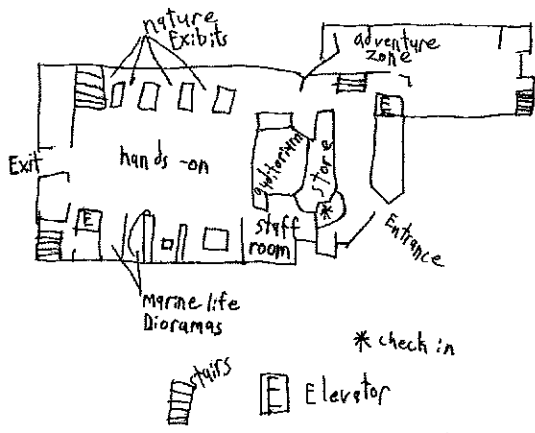 nature
Exibits
adventure
zone
E
Exit
hands-on
auditorium
store
*
E
staff
room
Entrance
Marine life
Dioramas
* check in
stairs
E Elevator